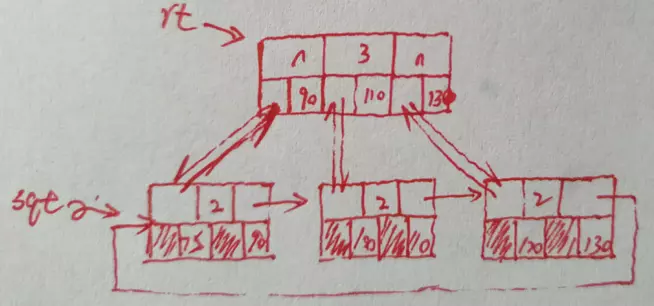 rt
n 3 n
90 110 130
sqt
2 2 2
75 90 110 120 130